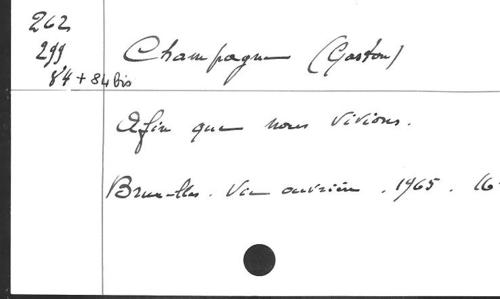 262
299
84 + 84 bis
Champagne (Gaston)
Afin que nous vivions.
Bruxelles. Vie ouvrière. 1965. 16